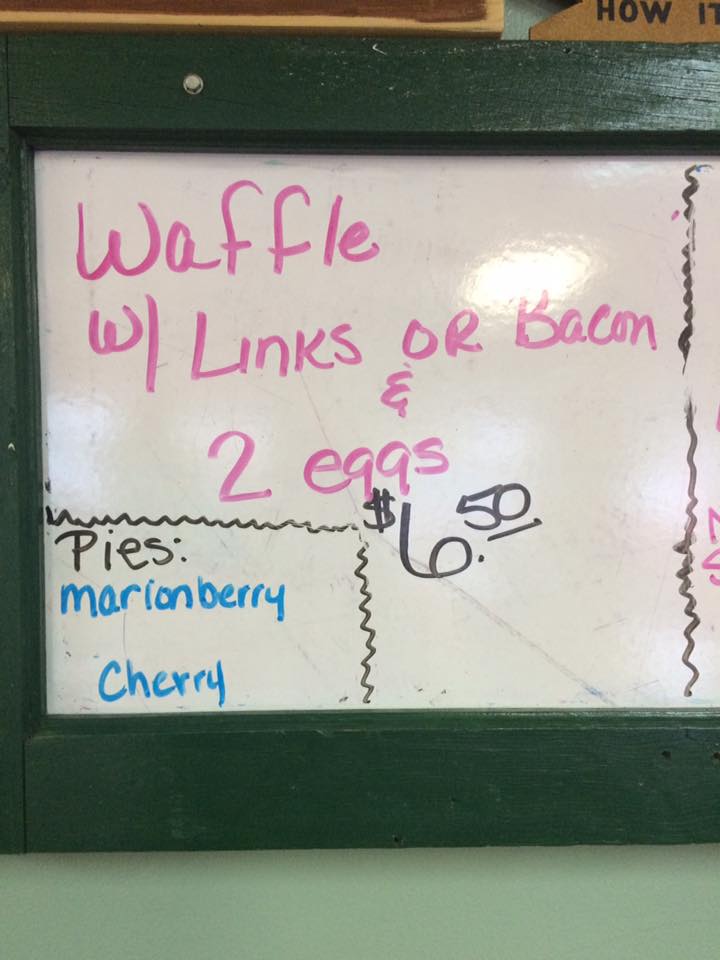 HOW IT
Waffle
w/ Links OR Bacon
&
2 eggs
$6.50
Pies:
marionberry
Cherry